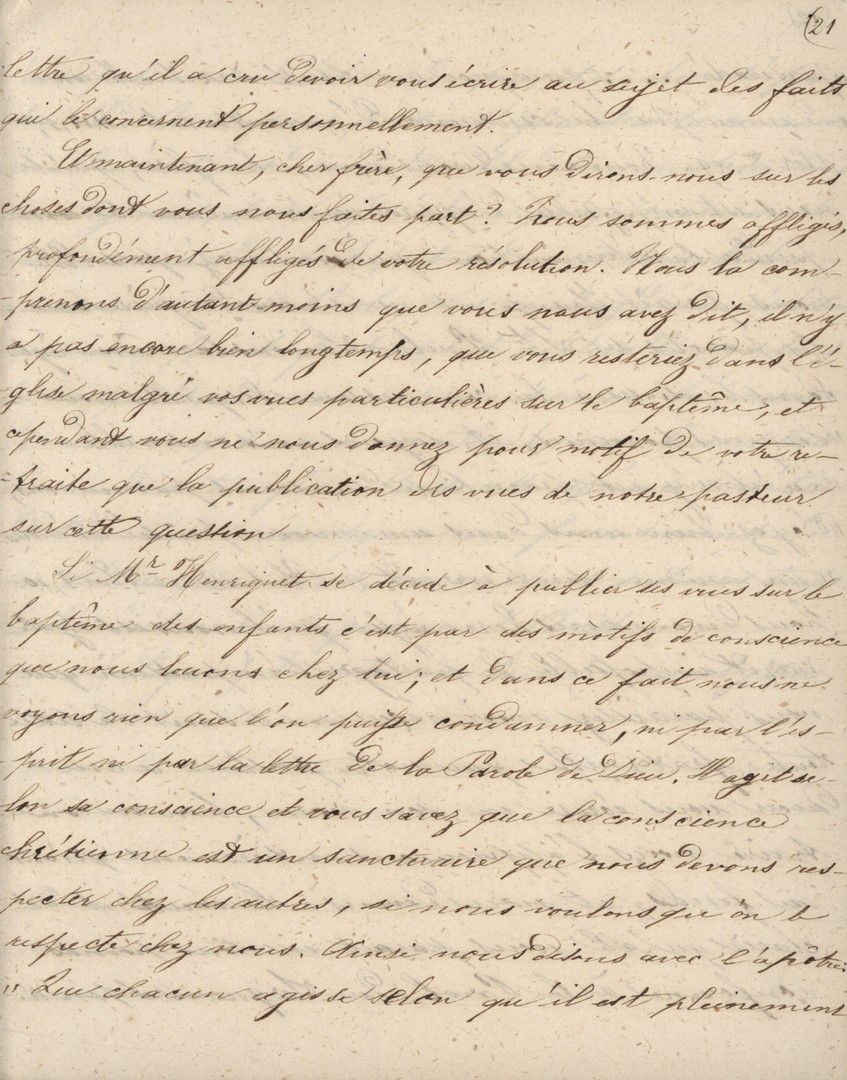 (21
lettre qu'il a cru devoir vous écrire au sujet des faits
qui le concernent personnellement.
Et maintenant, cher frère, que vous dirons-nous sur les
choses dont vous nous faites part? Nous sommes affligés,
profondément affligés de votre résolution. Nous la com-
-prenons d'autant moins que vous nous avez dit, il n'y
a pas encore bien longtemps, que vous resteriez dans l'é-
-glise malgré vos vues particulières sur le baptême, et
cependant vous ne nous donnez pour motif de votre re-
-traite que la publication des vues de notre pasteur
sur cette question
Si Mr Henriquet se décide à publier ses vues sur le
baptême des enfants c'est par des motifs de conscience
que nous louons chez lui; et dans ce fait nous ne
voyons rien que l'on puisse condamner, ni par l'es-
-prit ni par la lettre de la Parole de Dieu. Il agit se-
lon sa conscience et vous savez que la conscience
chrétienne est un sanctuaire que nous devons res-
pecter chez les autres, si nous voulons qu'on le
respecte chez nous. Ainsi nous disons avec l'apôtre:
" Que chacun agisse selon qu'il est pleinement